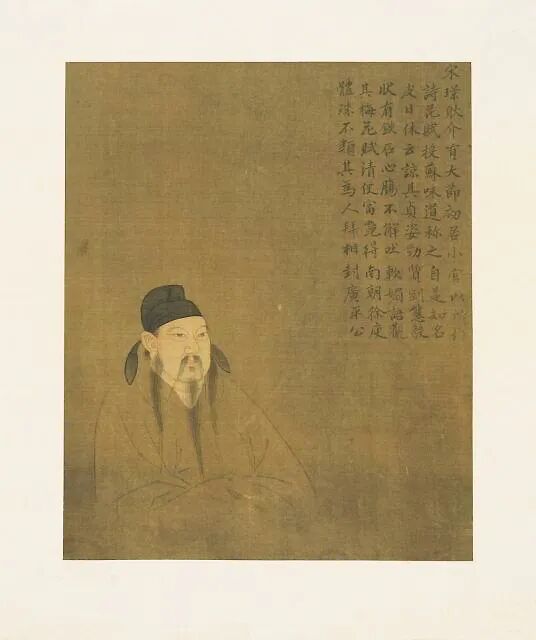 宋璟耿介有大節初苦小官以所
詩花賦投蘇味道称之自是知名
皮日休云諒其貞姿勁質剛態毅
狀有鉄石心腸不解吐軟媚語觀
其梅花賦清便富艷得南朝徐庾
體殊不類其爲人拜相封廣平公